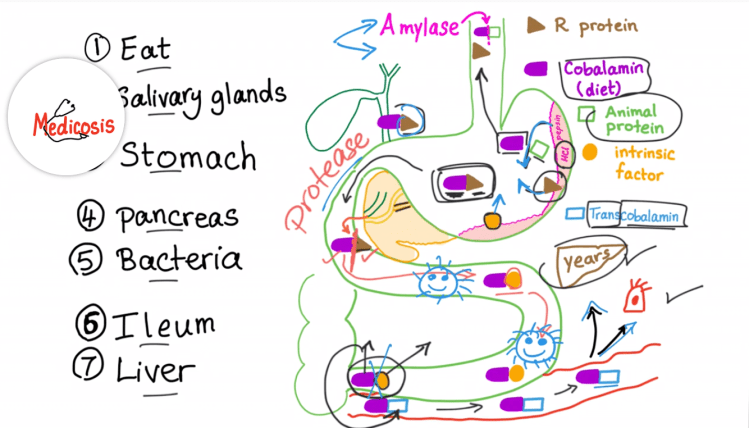 ① Eat
Salivary glands
Medicosis
Stomach
④ Pancreas
⑤ Bacteria
⑥ Ileum
⑦ Liver
Amylase
Protease
pepsin
HCl
R protein
Cobalamin
(diet)
Animal
protein
intrinsic
factor
Transcobalamin
years